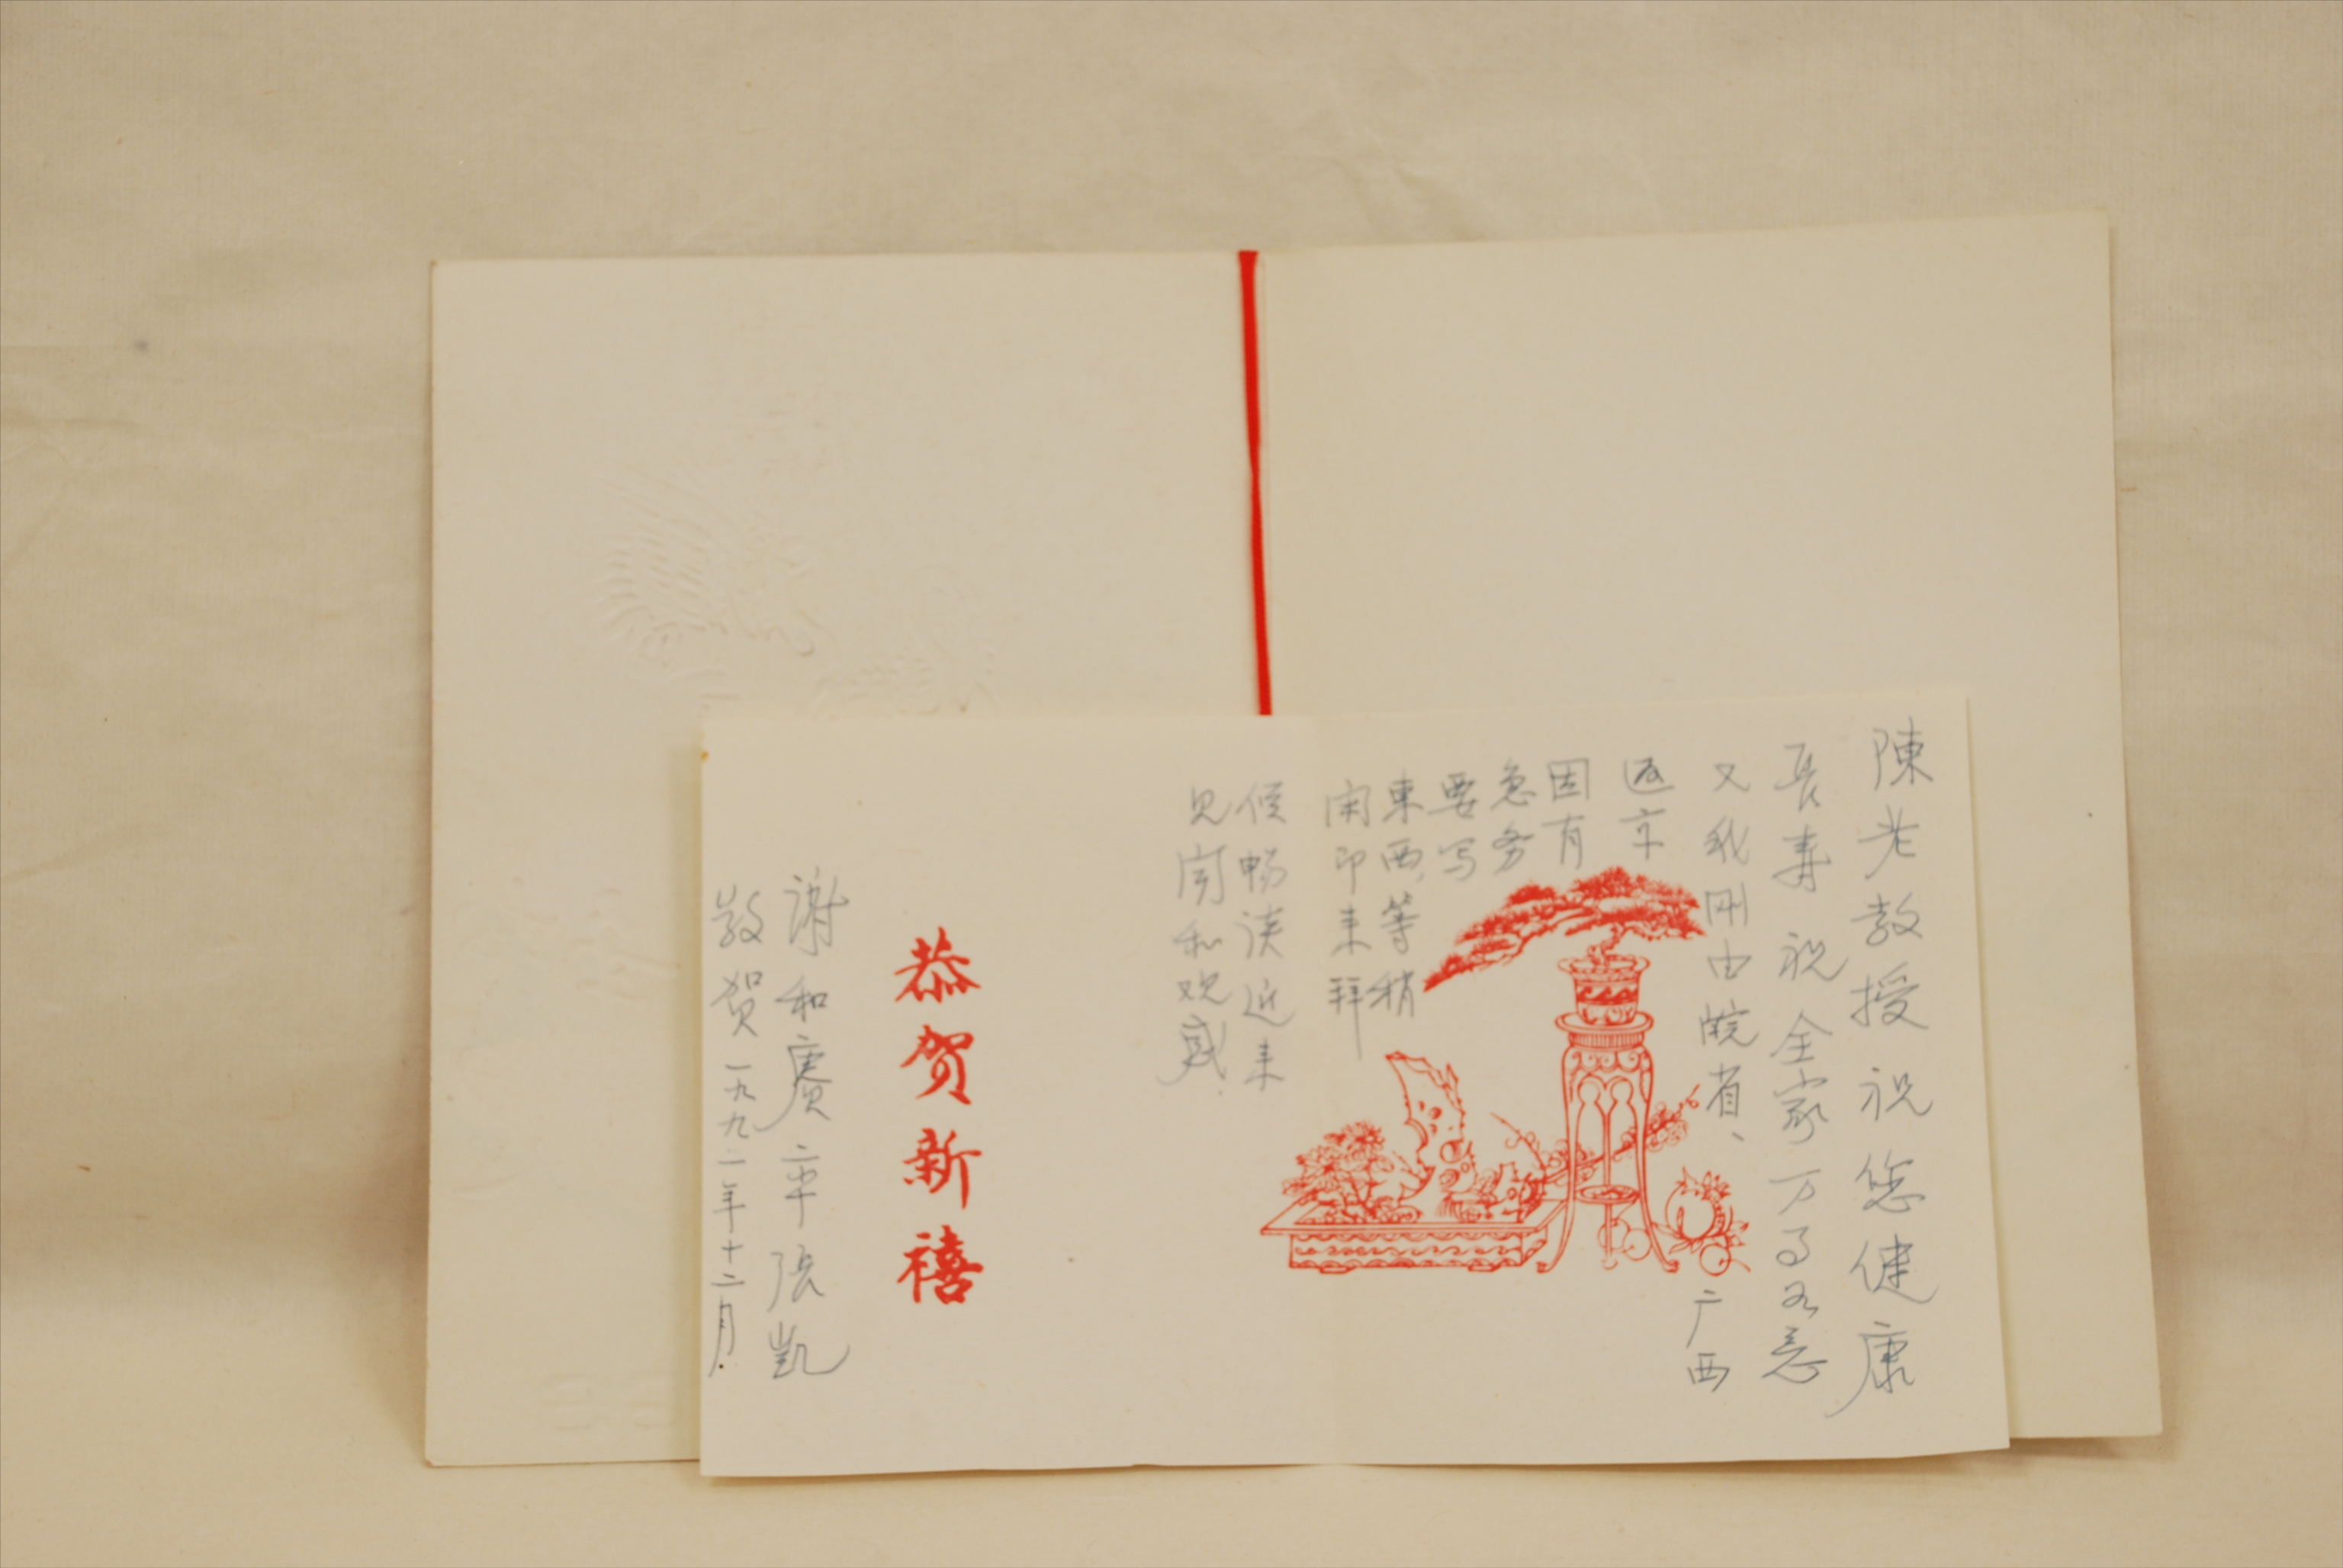 陳老教授祝您健康
長寿祝全家万事如意
又我刚由皖省、广西
返京
因有
急务
要写
東西,等稍
闲即来拜
候畅谈近来
见闻和观感.
恭贺新禧
谢和赓辛張凯
敬贺一九九一年十二月.